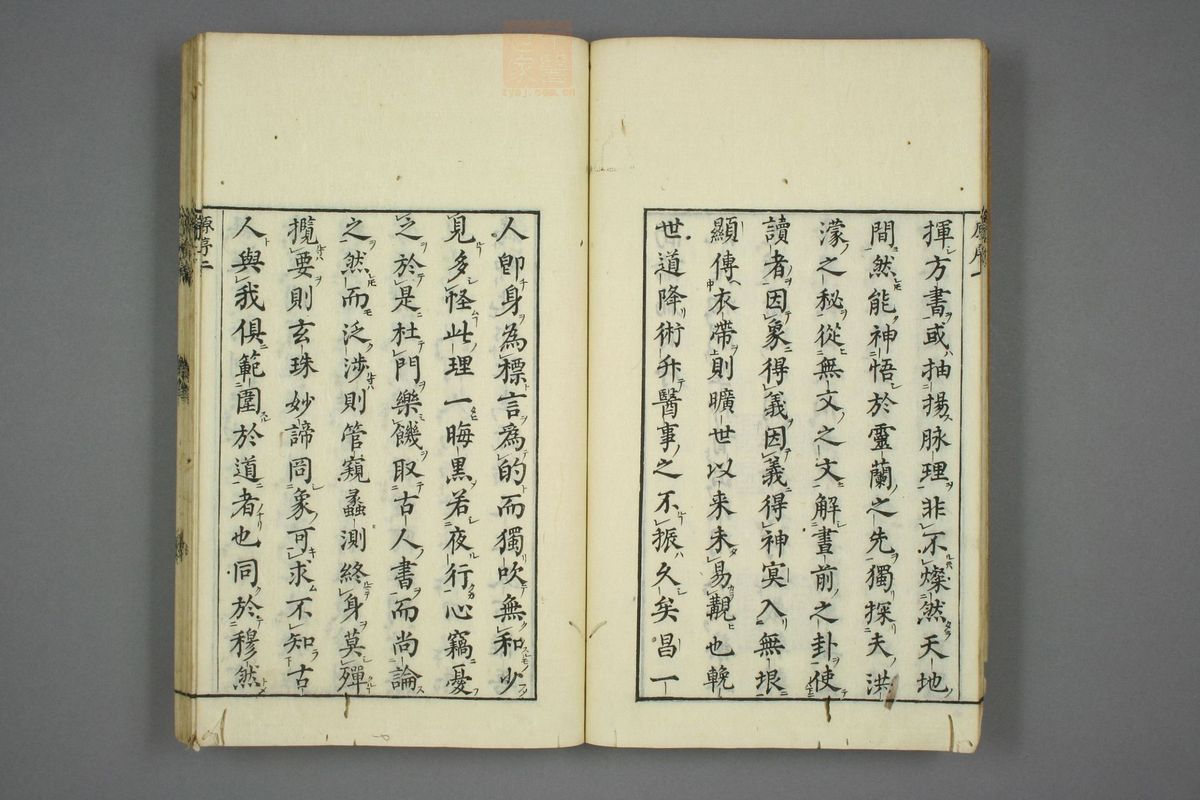 揮方書或抽揚脉理非不燦然天地
間然能神悟於靈蘭之先獨探夫洪
濛之秘從無文之文解畫前之卦使
讀者因象得義因義得神冥入無垠
顯傳衣帶則曠世以来未易覯也輓
世道降術升醫事之不振久矣昌一
人卽身為標言為的而獨吹無和少
見多怪此理一晦黒若夜行心竊憂
之於是杜門樂饑取古人書而尚論
之然而泛涉則管窺蠡測終身莫殫
攬要則玄珠妙諦罔象可求不知古
人與我俱範圍於道者也同於穆然
原序二
zysj.com.cn